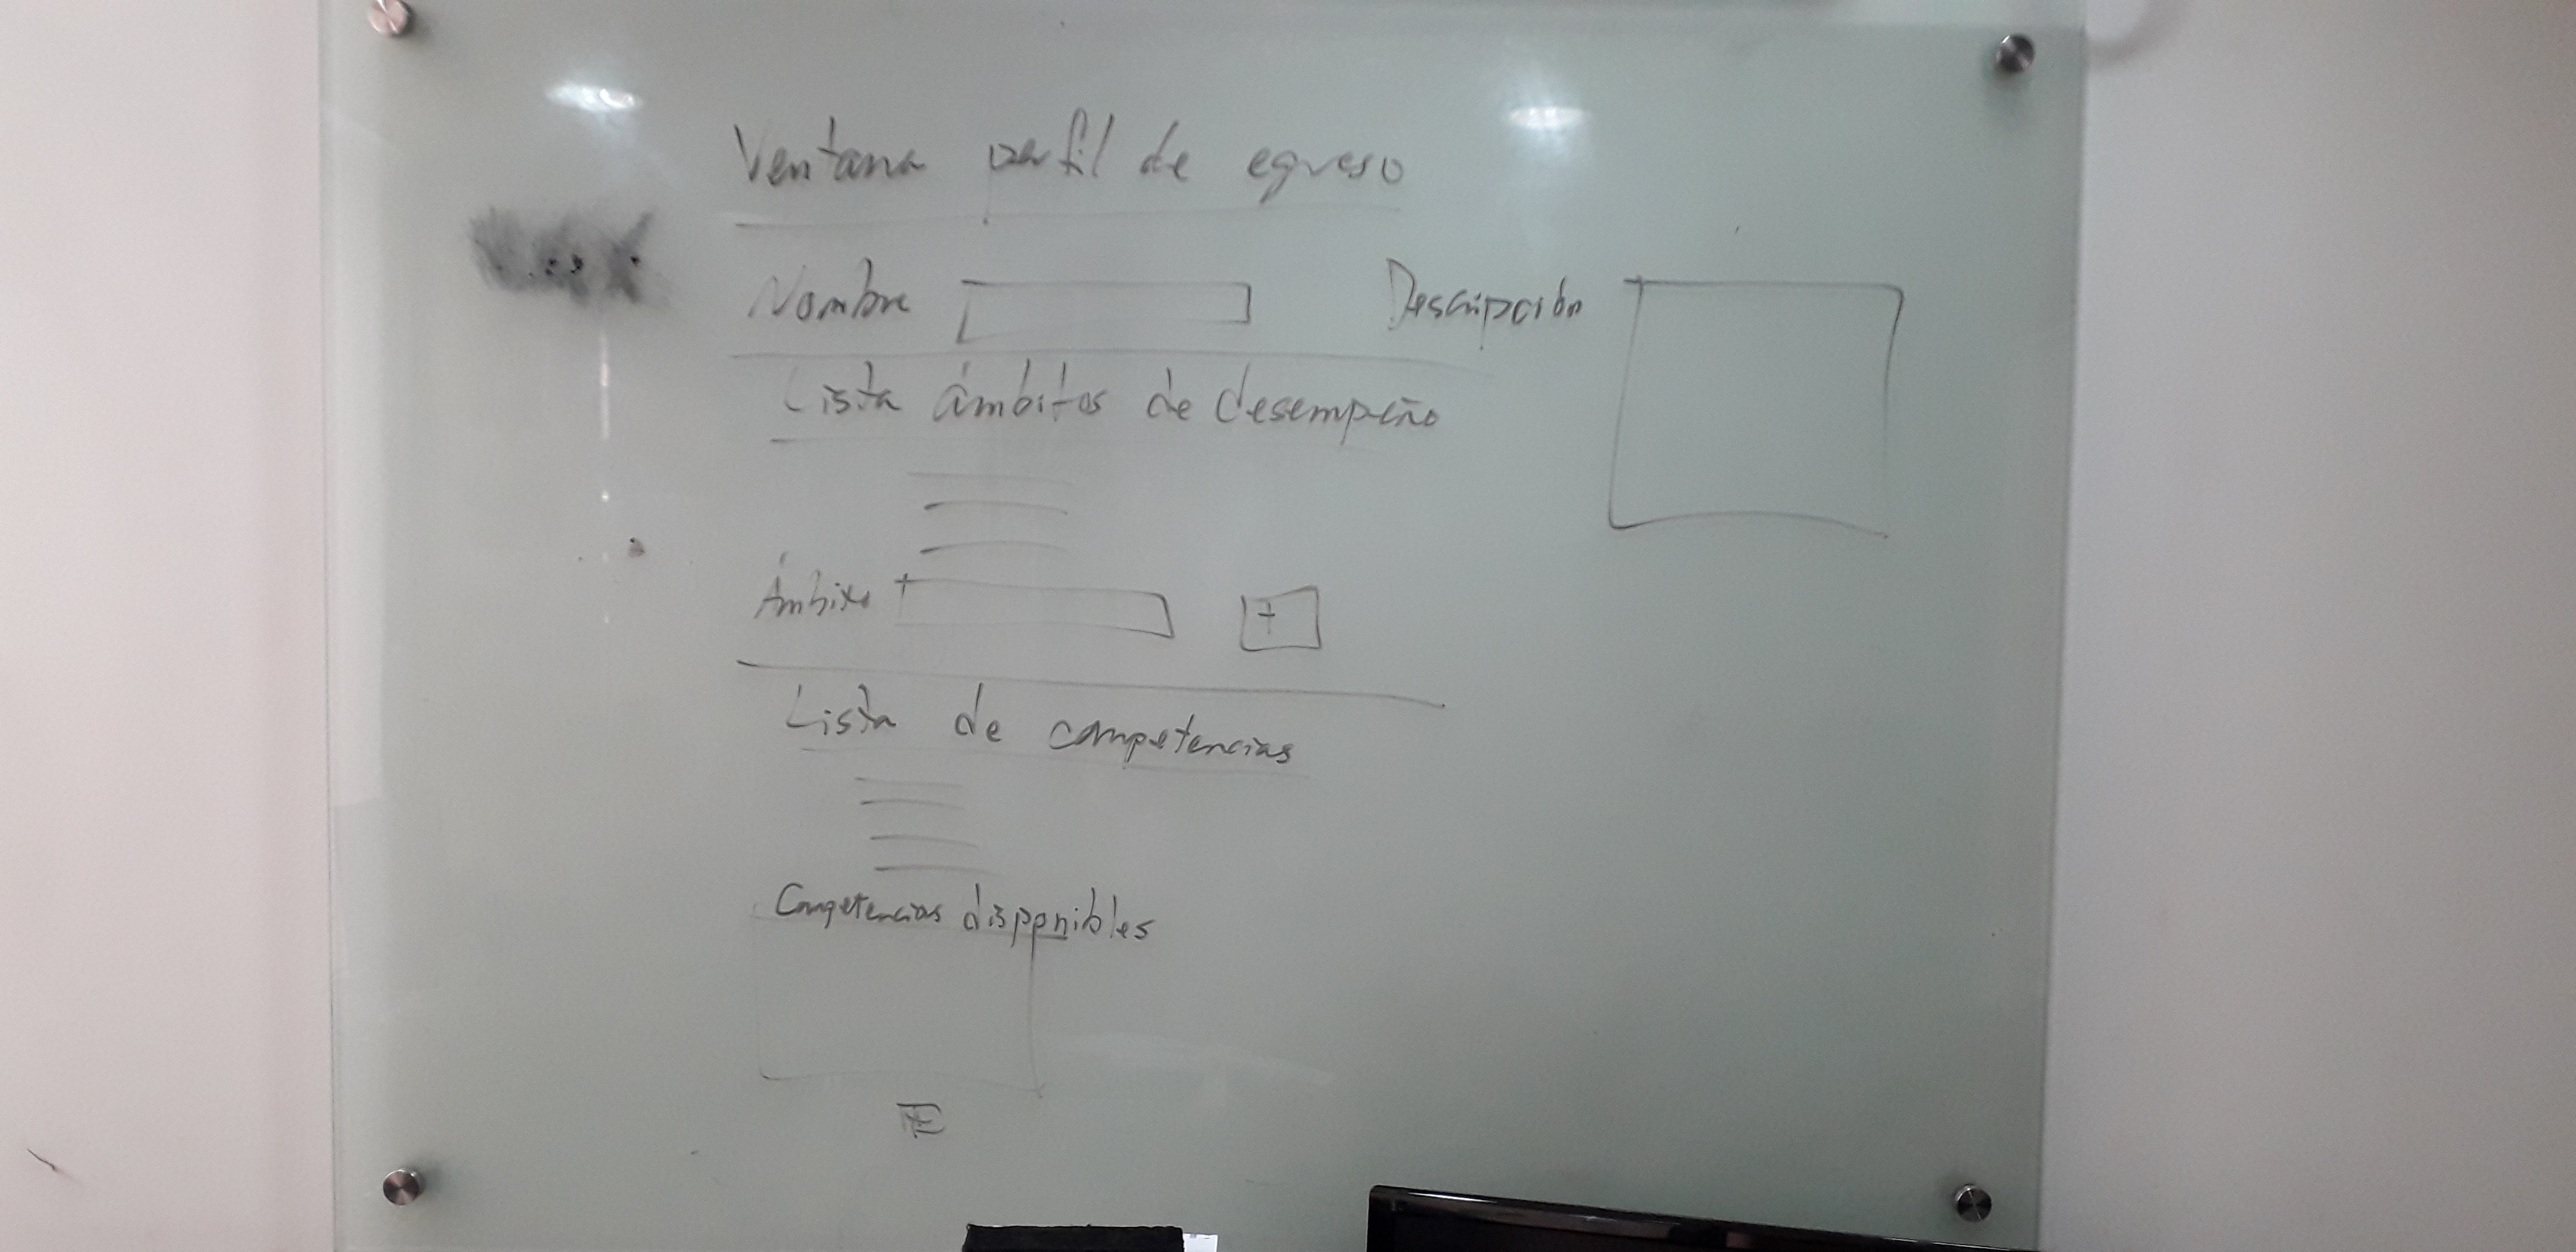 Ventana perfil de egreso
Nombre
Descripción
Lista ámbitos de desempeño
Ámbito
+
Lista de competencias
Competencias disponibles
+